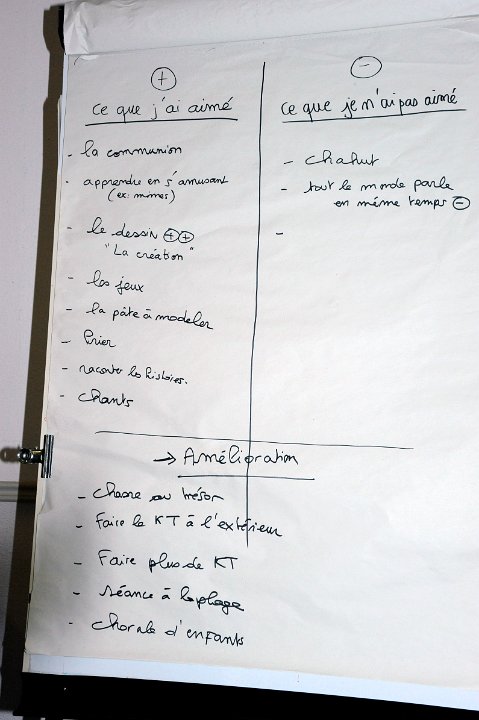 +
ce que j'ai aimé
- la communion
- apprendre en s'amusant
(ex: mimes)
- le dessin ++
"La création"
- les jeux
- la pâte à modeler
- Prier
- raconter les histoires.
- chants
-
ce que je n'ai pas aimé
- chahut
- tout le monde parle
en même temps -
-
→ Amélioration
- chasse au trésor
- Faire le KT à l'extérieur
- Faire plus de KT
- séance à la plage
- chorale d'enfants